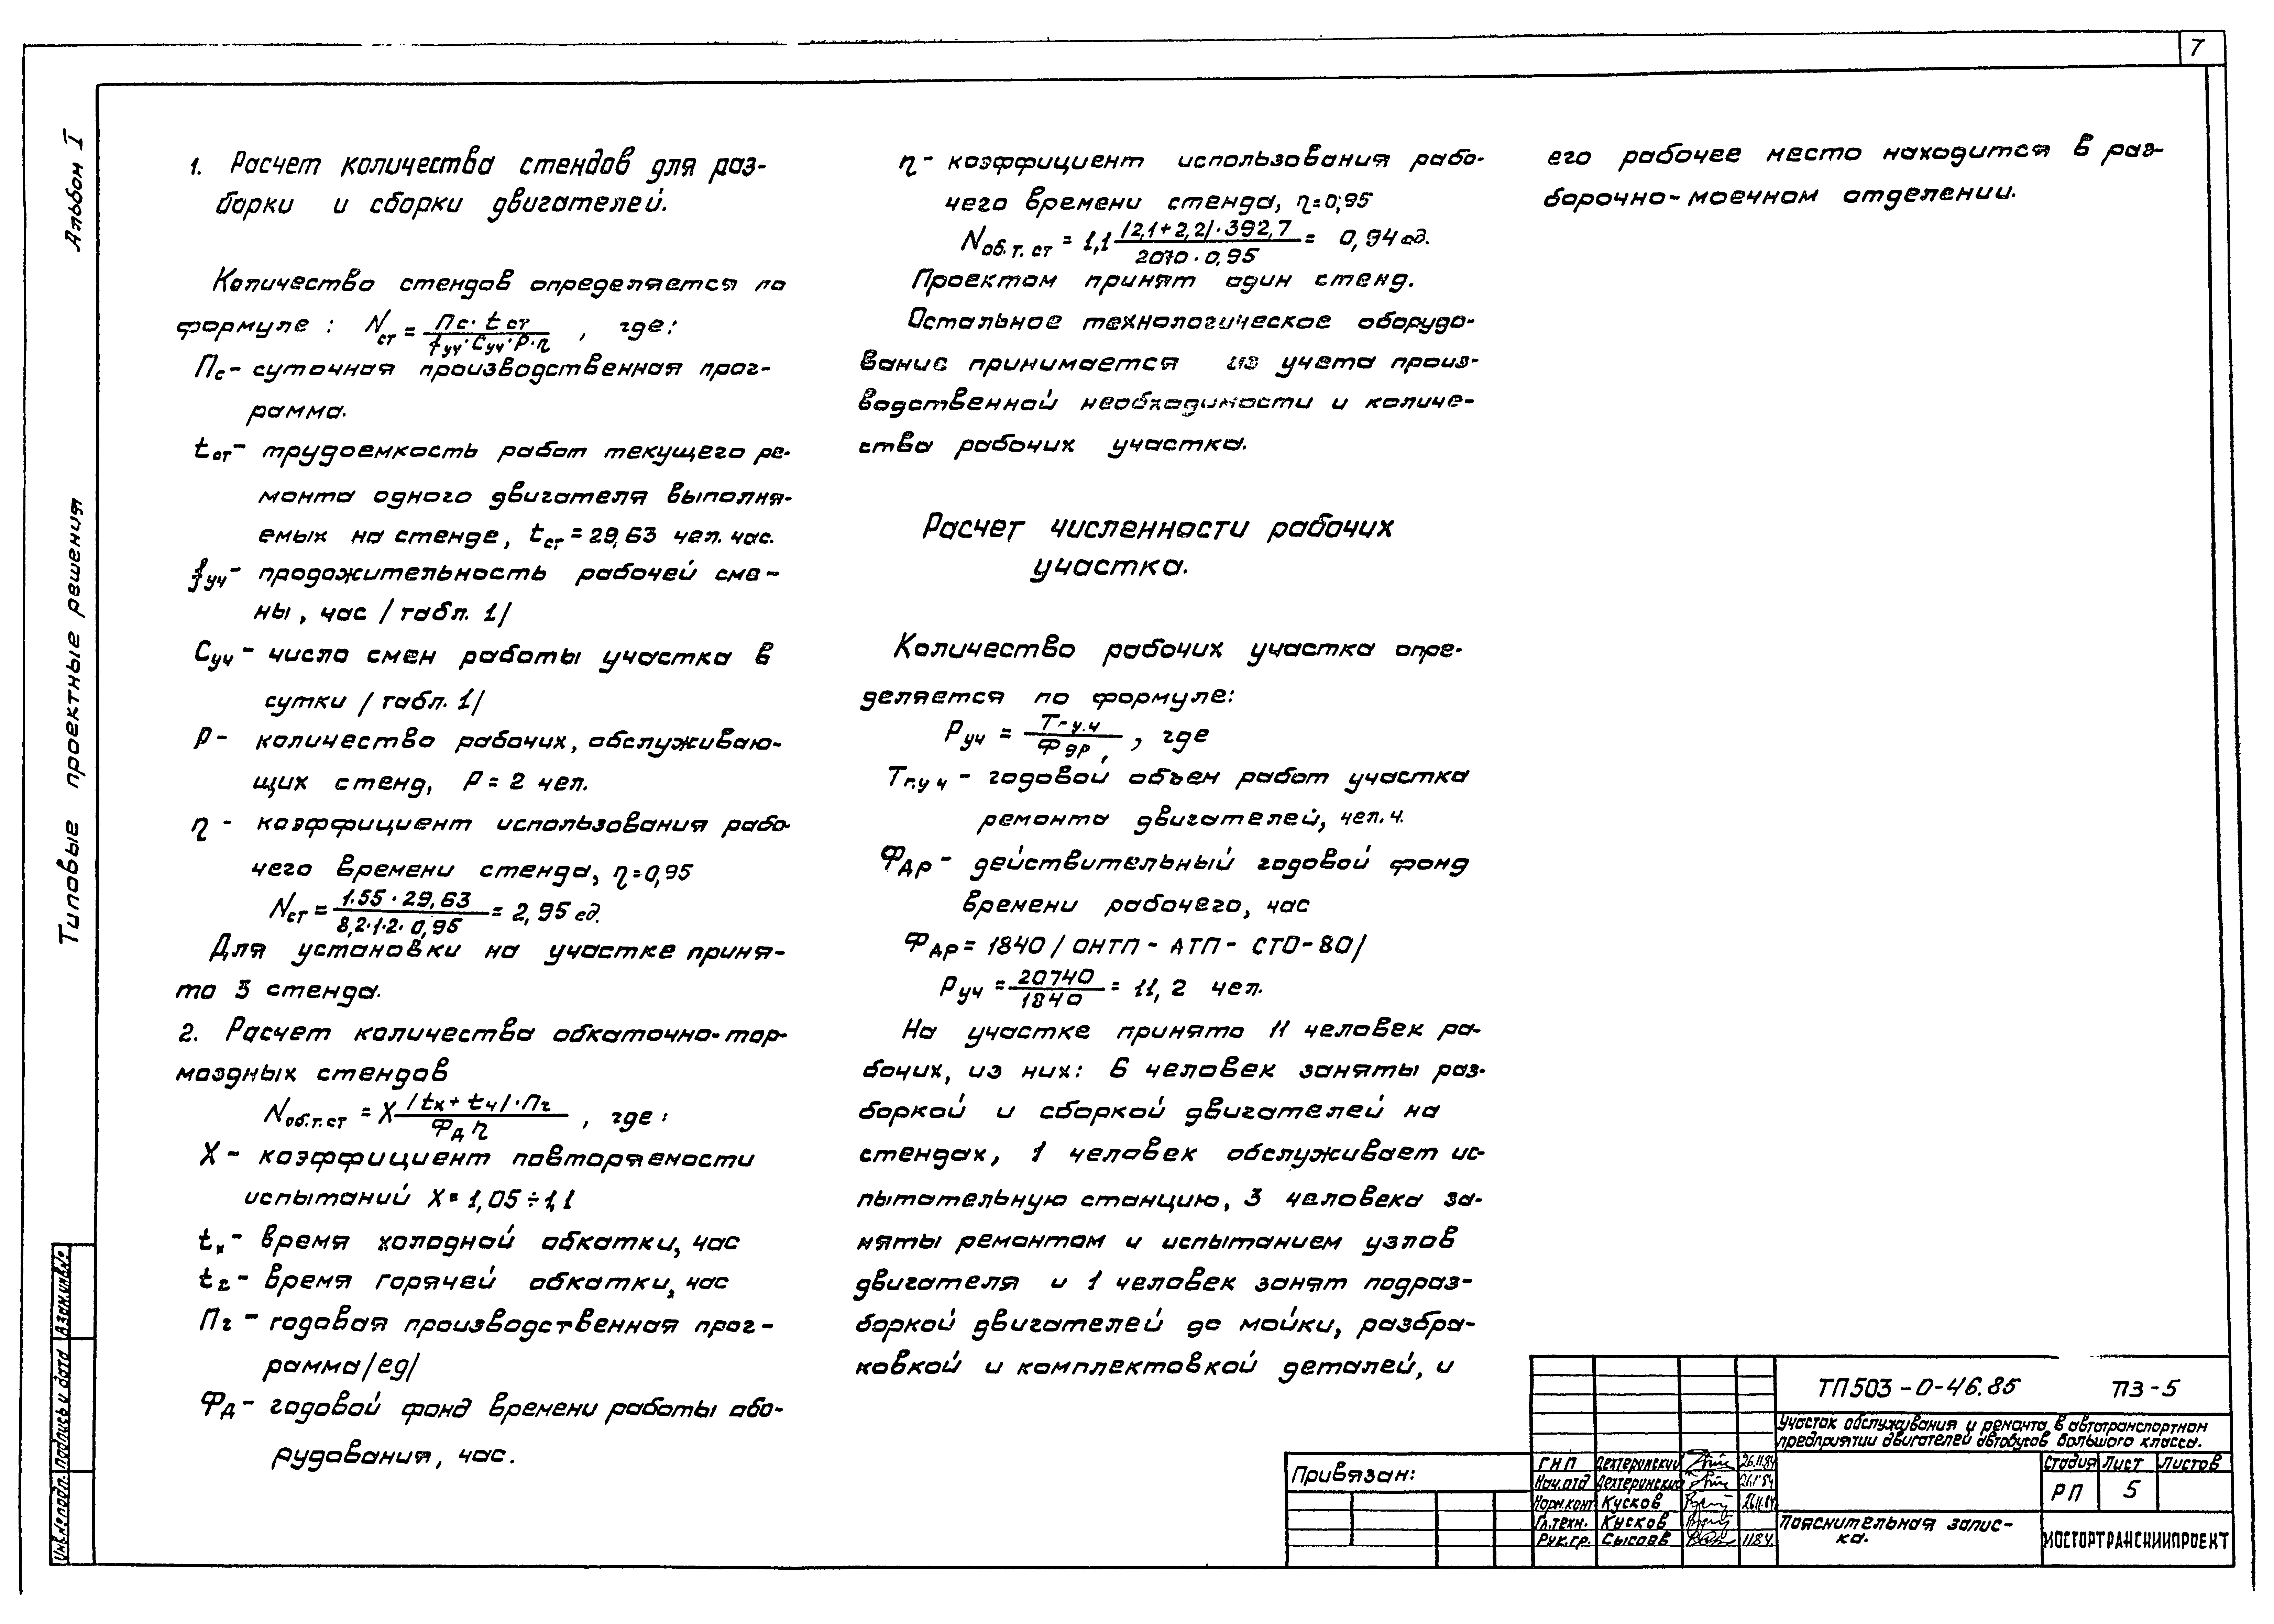 7
Альбом I
Типовые проектные решения
1. Расчет количества стендов для раз-
борки и сборки двигателей.
Количество стендов определяется по
формуле: Nст = Пс·tст / fуч·Cуч·P·η , где:
Пс - суточная производственная прог-
рамма.
tст - трудоемкость работ текущего ре-
монта одного двигателя выполня-
емых на стенде, tст = 29,63 чел. час.
fуч - продожительность рабочей сме-
ны, час /табл. 1/
Cуч - число смен работы участка в
сутки /табл. 1/
P - количество рабочих, обслуживаю-
щих стенд, P = 2 чел.
η - коэффициент использования рабо-
чего времени стенда, η=0,95
Nст = 1.55·29,63 / 8,2·1·2·0,95 = 2,95 ед.
Для установки на участке приня-
то 3 стенда.
2. Расчет количества обкаточно-тор-
мозных стендов
Nоб.т.ст = X /tx + tч/·Пг / Фд η , где:
X - коэффициент повторяемости
испытаний X = 1,05÷1,1
tх - время холодной обкатки, час
tг - время горячей обкатки, час
Пг - годовая производственная прог-
рамма /ед/
Фд - годовой фонд времени работы обо-
рудования, час.
η - коэффициент использования рабо-
чего времени стенда, η=0,95
Nоб.т.ст = 1,1 /2,1+2,2/·392,7 / 2070·0,95 = 0,94 ед.
Проектом принят один стенд.
Остальное технологическое оборудо-
вание принимается из учета произ-
водственной необходимости и количе-
ства рабочих участка.
Расчет численности рабочих
участка.
Количество рабочих участка опре-
деляется по формуле:
Pуч = Тг.уч / Фдр , где
Тг.уч - годовой объем работ участка
ремонта двигателей, чел. ч.
Фдр - действительный годовой фонд
времени рабочего, час
Фдр = 1840 /ОНТП - АТП - СТО-80/
Pуч = 20740 / 1840 = 11,2 чел.
На участке принято 11 человек ра-
бочих, из них: 6 человек заняты раз-
боркой и сборкой двигателей на
стендах, 1 человек обслуживает ис-
пытательную станцию, 3 человека за-
няты ремонтом и испытанием узлов
двигателя и 1 человек занят подраз-
боркой двигателей до мойки, разбра-
ковкой и комплектовкой деталей, и
его рабочее место находится в раз-
борочно-моечном отделении.
Инв.№ подл. Подпись и дата Взам.инв.№
Привязан:
ТП503-0-46.85 ПЗ-5
Участок обслуживания и ремонта в автотранспортном
предприятии двигателей автобусов большого класса.
ГНП Дехтеринский 26.11.84
Нач.отд Дехтеринский
Норм.конт Кусков 26.11.84
Гл.техн. Кусков
Рук.гр. Сысоев 11.84.
Стадия Лист Листов
РП 5
Пояснительная запис-
ка.
МОСГОРТРАНСНИИПРОЕКТ